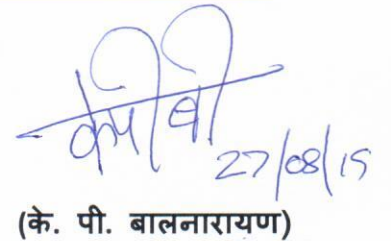 केपीबी
27/08/15
(के. पी. बालनारायण)